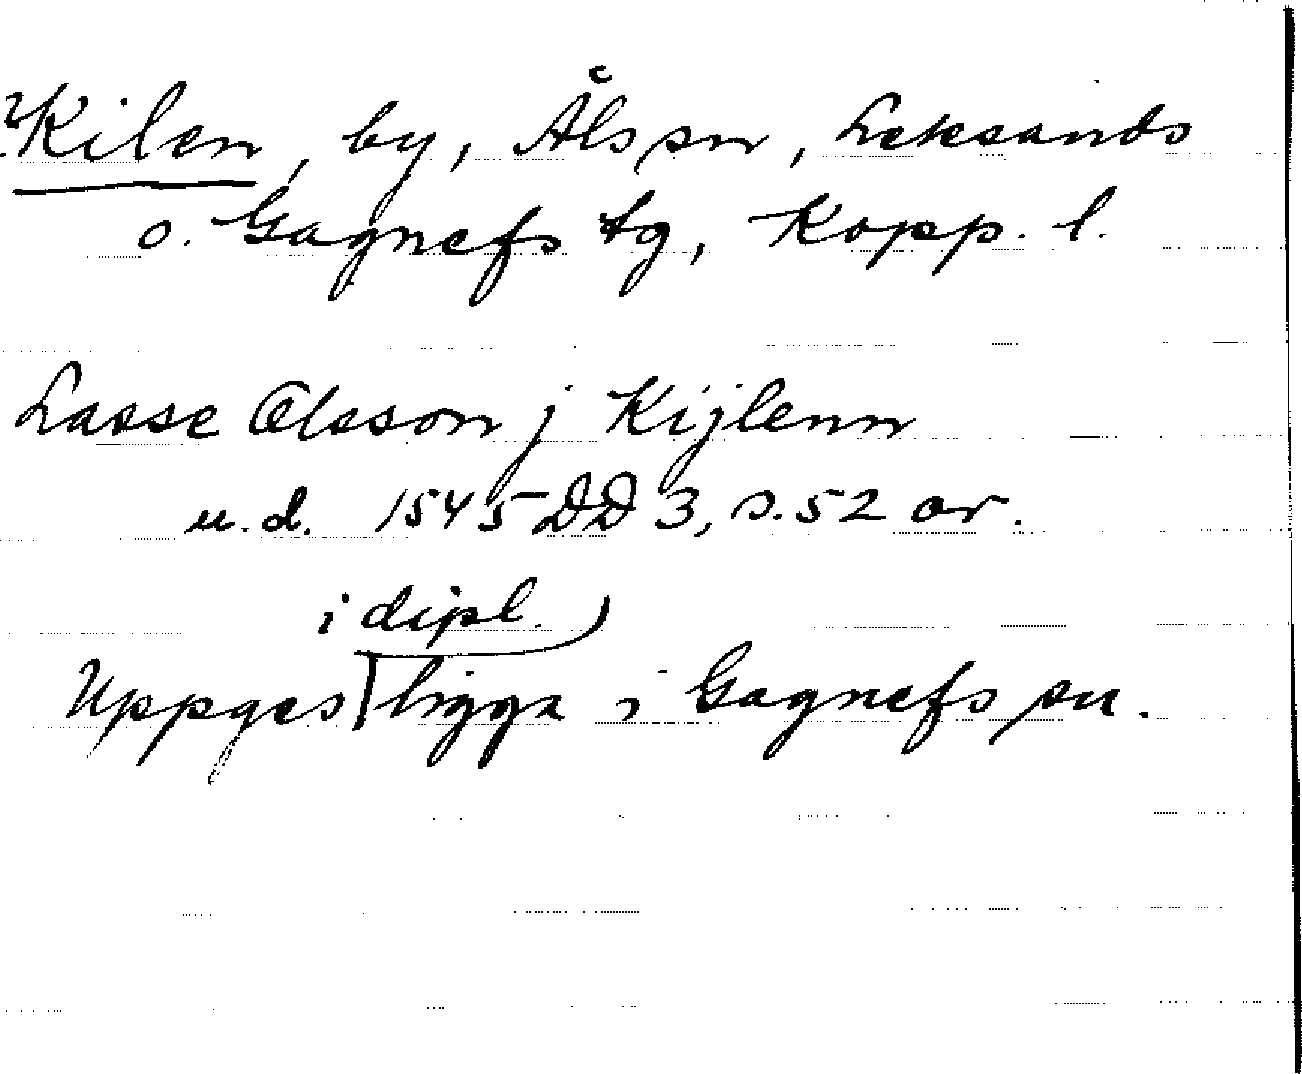 ?Kilen, by, Åls sn, Leksands
o. Gagnefs tg, Kopp. l.
Lasse Olsson j Kijlenn
u.d. 1545 DD 3, s. 52 or.
i dipl.
Uppges ligga i Gagnefs sn.